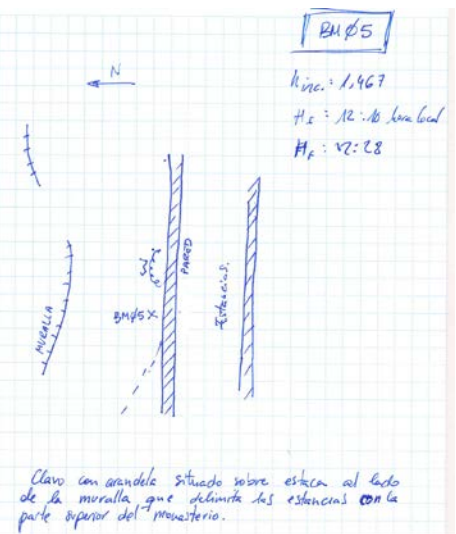 BMØ5
N
h inc.: 1,467
Hs : 12:10 hora local
HF : 12:28
PARED
BMØ5 X
Estancias.
MURALLA
Clavo con arandela situado sobre estaca al lado
de la muralla que delimita las estancias con la
parte superior del monasterio.